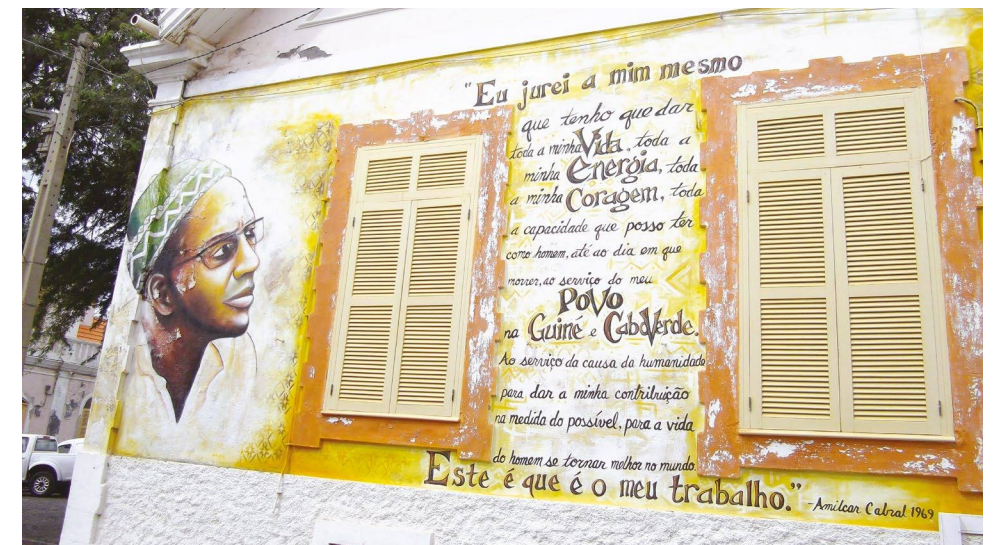 "Eu jurei a mim mesmo
que tenho que dar
toda a minha Vida, toda a
minha Energia, toda
a minha Coragem, toda
a capacidade que posso ter
como homem, até ao dia em que
morrer, ao serviço do meu
PoVo
na Guiné e CaboVerde.
Ao serviço da causa da humanidade
para dar a minha contribuição
na medida do possível, para a vida
do homem se tornar melhor no mundo.
Este é que é o meu trabalho."
-Amilcar Cabral 1969